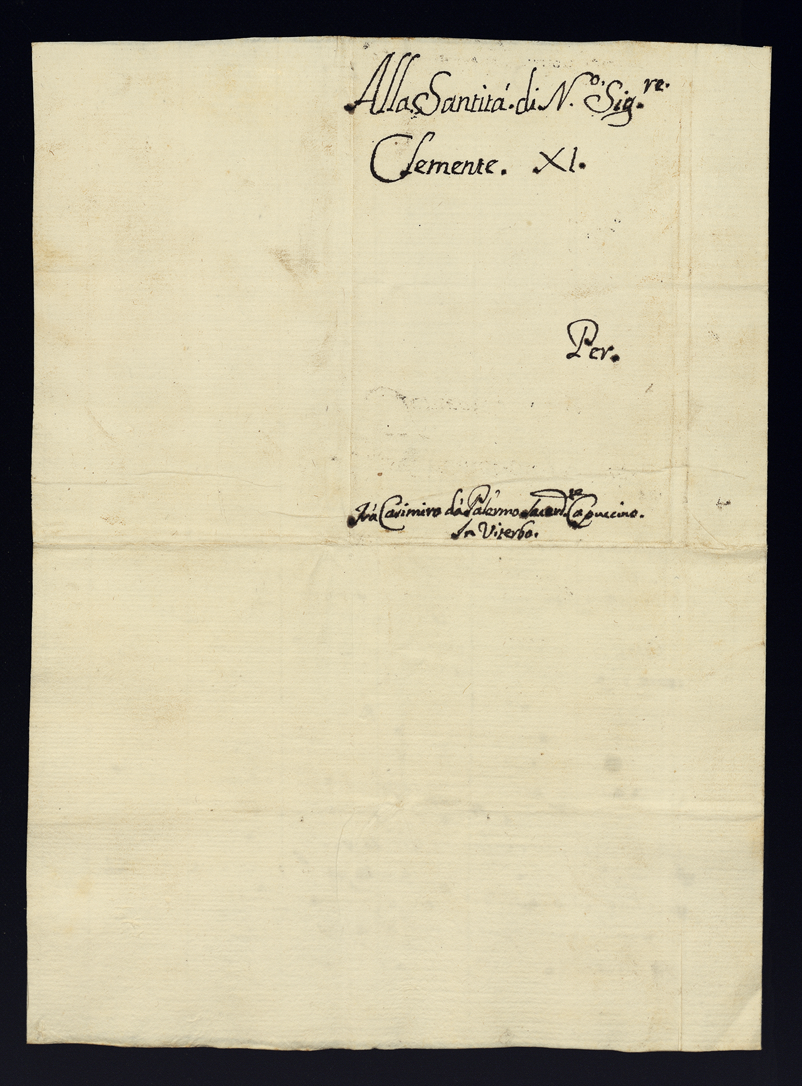 Alla Santitá. di. N.º Sig.re.
Clemente. XI.
Per.
Frá Casimiro dá Palermo Sacerd.te Capuccino.
In Viterbo.